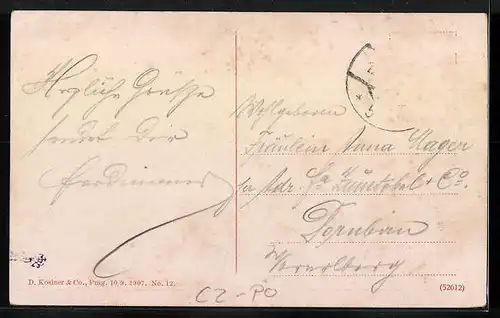 Herzliche Grüße
sendet Dir
Ferdinand
Wohlgeboren
Fräulein Anna Hagen
per Adr. Fa Zumtobel & Co.
Dornbirn
Vorarlberg
D. Kosiner & Co., Prag. 10/9. 1907. No. 12.
(52612)
CZ-PO